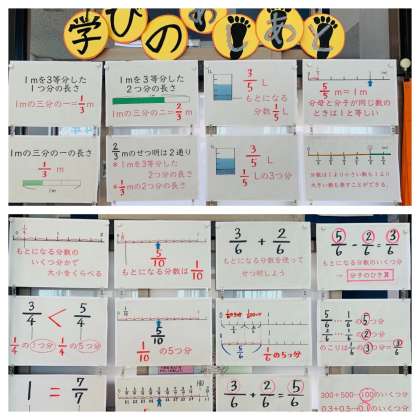 学びのあしあと
1mを3等分した
1つ分の長さ
1mの三分の一=1/3m
1mを3等分した
2つ分の長さ
1mの三分の二=2/3m
3/5 L
もとになる
分数 1/5 L
5/5 m=1m
分母と分子が同じ数の
ときは1と等しい
1mの三分の一の長さ
1/3 m
2/3mのせつ明は2通り
*1mを3等分した
2つ分の長さ
*1/3mの2つ分の長さ
3/5 L
1/5Lの3つ分
分数は1より小さい数も1より
大きい数も表すことができる。
もとになる分数の
いくつ分かで
大小をくらべる
5/10
もとになる分数は 1/10
3/6 + 2/6
もとになる分数を使って
せつ明しよう
5/6 - 2/6 = 3/6
もとになる分数のいくつ分
→ 分子のひき算
3/4 < 5/4
1/4の3つ分 1/4の5つ分
5/10
1/10の5つ分
5/6
1/6の5つ分
5/6 1/6の5つ分
2/6 1/6の2つ分
のこりは 1/6の3つ分=3/6
1 = 7/7
3/6 + 2/6 = 5/6
300+500…100のいくつ分
0.3+0.5…0.1のいくつ分